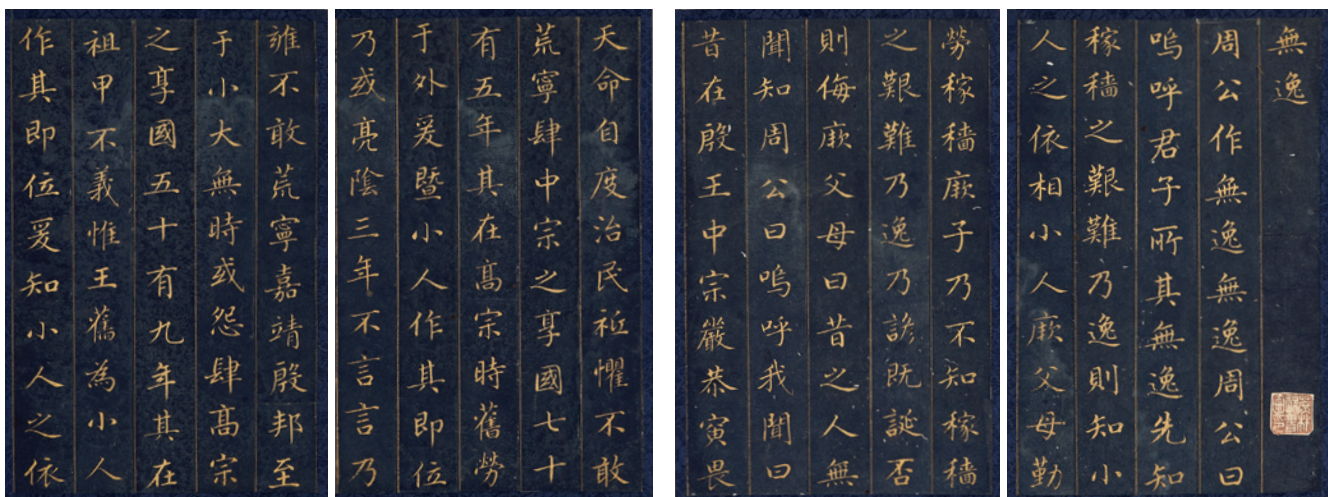 無逸
周公作無逸無逸周公曰
嗚呼君子所其無逸先知
稼穡之艱難乃逸則知小
人之依相小人厥父母勤
勞稼穡厥子乃不知稼穡
之艱難乃逸乃諺既誕否
則侮厥父母曰昔之人無
聞知周公曰嗚呼我聞曰
昔在殷王中宗嚴恭寅畏
天命自度治民祗懼不敢
荒寧肆中宗之享國七十
有五年其在髙宗時舊勞
于外爰暨小人作其即位
乃或亮陰三年不言言乃
雍不敢荒寧嘉靖殷邦至
于小大無時或怨肆髙宗
之享國五十有九年其在
祖甲不義惟王舊為小人
作其即位爰知小人之依